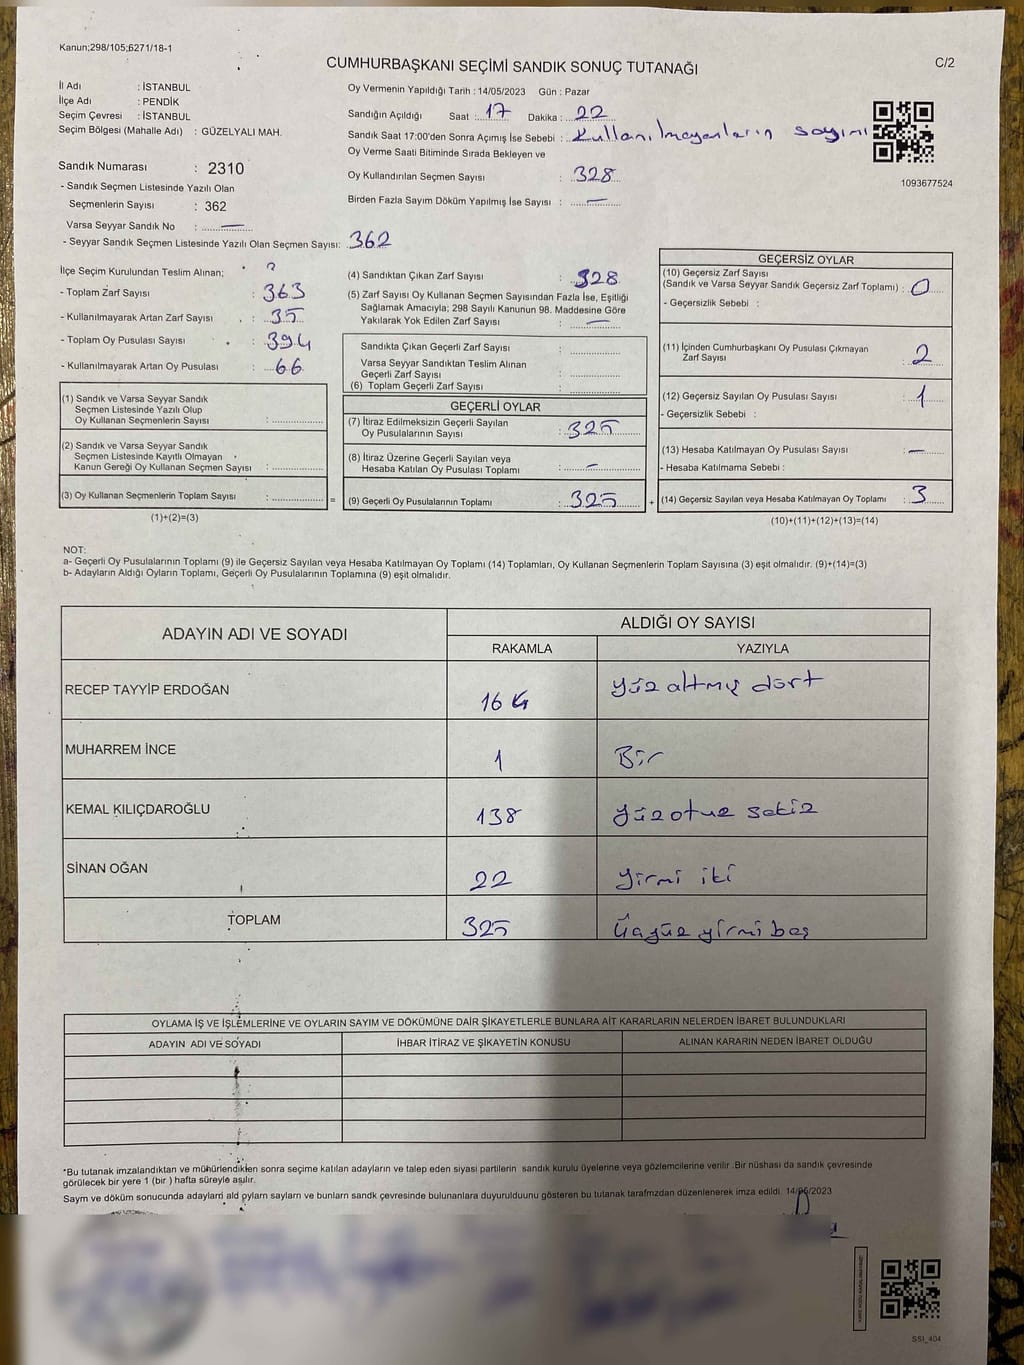 Kanun;298/105;6271/18-1
CUMHURBAŞKANI SEÇİMİ SANDIK SONUÇ TUTANAĞI
C/2
İl Adı : İSTANBUL
İlçe Adı : PENDİK
Seçim Çevresi : İSTANBUL
Seçim Bölgesi (Mahalle Adı) : GÜZELYALI MAH.
Oy Vermenin Yapıldığı Tarih : 14/05/2023 Gün : Pazar
Sandığın Açıldığı Saat : 17 Dakika : 22
Sandık Saat 17:00'den Sonra Açımış İse Sebebi : Kullanılmayanların sayımı
Oy Verme Saati Bitiminde Sırada Bekleyen ve
Oy Kullandırılan Seçmen Sayısı : 328
Birden Fazla Sayım Döküm Yapılmış İse Sayısı : —
1093677524
Sandık Numarası : 2310
- Sandık Seçmen Listesinde Yazılı Olan
Seçmenlerin Sayısı : 362
Varsa Seyyar Sandık No : —
- Seyyar Sandık Seçmen Listesinde Yazılı Olan Seçmen Sayısı: 362
İlçe Seçim Kurulundan Teslim Alınan;
- Toplam Zarf Sayısı : 363
- Kullanılmayarak Artan Zarf Sayısı : 35
- Toplam Oy Pusulası Sayısı : 394
- Kullanılmayarak Artan Oy Pusulası : 66
(1) Sandık ve Varsa Seyyar Sandık
Seçmen Listesinde Yazılı Olup
Oy Kullanan Seçmenlerin Sayısı :
(2) Sandık ve Varsa Seyyar Sandık
Seçmen Listesinde Kayıtlı Olmayan
Kanun Gereği Oy Kullanan Seçmen Sayısı :
(3) Oy Kullanan Seçmenlerin Toplam Sayısı : =
(1)+(2)=(3)
(4) Sandıktan Çıkan Zarf Sayısı : 328
(5) Zarf Sayısı Oy Kullanan Seçmen Sayısından Fazla İse, Eşitliği
Sağlamak Amacıyla; 298 Sayılı Kanunun 98. Maddesine Göre
Yakılarak Yok Edilen Zarf Sayısı : —
Sandıkta Çıkan Geçerli Zarf Sayısı :
Varsa Seyyar Sandıktan Teslim Alınan
Geçerli Zarf Sayısı :
(6) Toplam Geçerli Zarf Sayısı :
GEÇERLİ OYLAR
(7) İtiraz Edilmeksizin Geçerli Sayılan
Oy Pusulalarının Sayısı : 325
(8) İtiraz Üzerine Geçerli Sayılan veya
Hesaba Katılan Oy Pusulası Toplamı : —
(9) Geçerli Oy Pusulalarının Toplamı : 325 +
GEÇERSİZ OYLAR
(10) Geçersiz Zarf Sayısı
(Sandık ve Varsa Seyyar Sandık Geçersiz Zarf Toplamı) : 0
- Geçersizlik Sebebi :
(11) İçinden Cumhurbaşkanı Oy Pusulası Çıkmayan
Zarf Sayısı : 2
(12) Geçersiz Sayılan Oy Pusulası Sayısı : 1
- Geçersizlik Sebebi :
(13) Hesaba Katılmayan Oy Pusulası Sayısı : —
- Hesaba Katılmama Sebebi :
(14) Geçersiz Sayılan veya Hesaba Katılmayan Oy Toplamı : 3
(10)+(11)+(12)+(13)=(14)
NOT:
a- Geçerli Oy Pusulalarının Toplamı (9) ile Geçersiz Sayılan veya Hesaba Katılmayan Oy Toplamı (14) Toplamları, Oy Kullanan Seçmenlerin Toplam Sayısına (3) eşit olmalıdır. (9)+(14)=(3)
b- Adayların Aldığı Oyların Toplamı, Geçerli Oy Pusulalarının Toplamına (9) eşit olmalıdır.
ADAYIN ADI VE SOYADI ALDIĞI OY SAYISI
RAKAMLA YAZIYLA
RECEP TAYYİP ERDOĞAN 164 yüz altmış dört
MUHARREM İNCE 1 Bir
KEMAL KILIÇDAROĞLU 138 yüz otuz sekiz
SİNAN OĞAN 22 yirmi iki
TOPLAM 325 Üçyüz yirmi beş
OYLAMA İŞ VE İŞLEMLERİNE VE OYLARIN SAYIM VE DÖKÜMÜNE DAİR ŞİKAYETLERLE BUNLARA AİT KARARLARIN NELERDEN İBARET BULUNDUKLARI
ADAYIN ADI VE SOYADI İHBAR İTİRAZ VE ŞİKAYETİN KONUSU ALINAN KARARIN NEDEN İBARET OLDUĞU
*Bu tutanak imzalandıktan ve mühürlendikten sonra seçime katılan adayların ve talep eden siyasi partilerin sandık kurulu üyelerine veya gözlemcilerine verilir .Bir nüshası da sandık çevresinde
görülecek bir yere 1 (bir ) hafta süreyle asılır.
Sayım ve döküm sonucunda adayların ald oyların sayların ve bunların sandk çevresinde bulunanlara duyurulduunu gösteren bu tutanak tarafmzdan düzenlenerek imza edildi. 14/05/2023
SSI_404